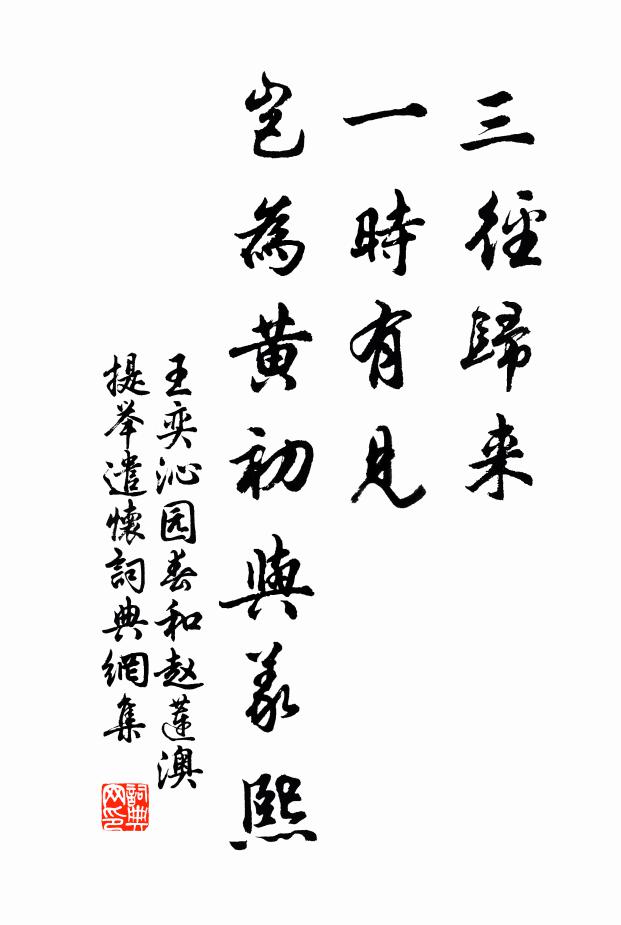 三徑歸来
一時有見
豈為黄初與義熙
王奕沁园春和赵莲澳
提举遣懷詞典網集
詞典网印